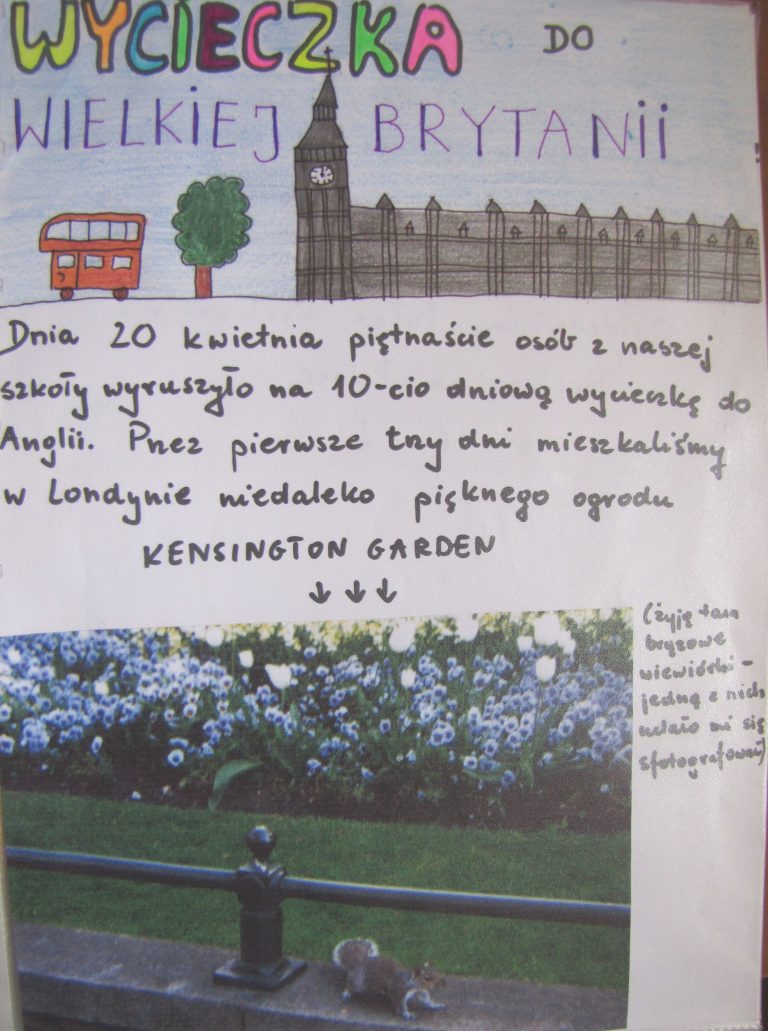 WYCIECZKA DO
WIELKIEJ BRYTANII
Dnia 20 kwietnia piętnaście osób z naszej
szkoły wyruszyło na 10-cio dniową wycieczkę do
Anglii. Przez pierwsze trzy dni mieszkaliśmy
w Londynie niedaleko pięknego ogrodu
KENSINGTON GARDEN
↓ ↓ ↓
(żyją tam
brązowe
wiewiórki -
jedną z nich
udało mi się
sfotografować)